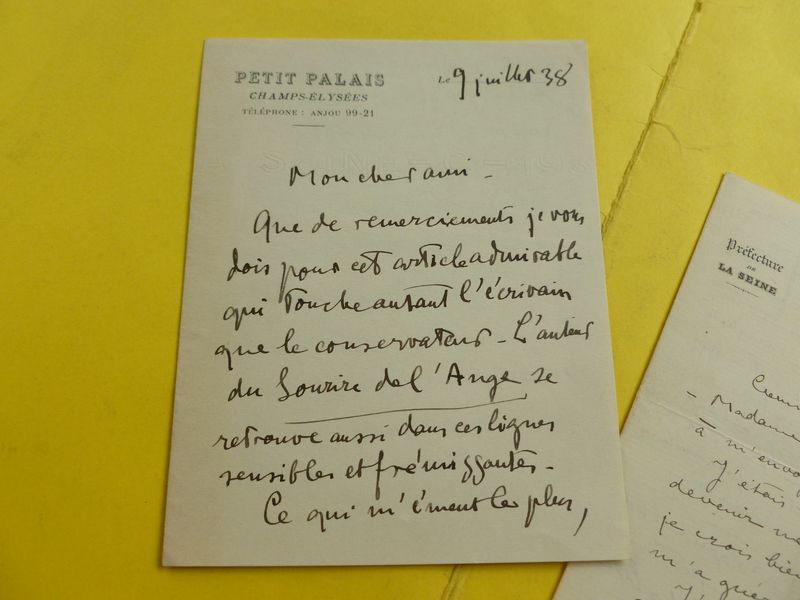 PETIT PALAIS
CHAMPS-ÉLYSÉES
TÉLÉPHONE : ANJOU 99-21
Le 9 juillet 38
Mon cher ami -
Que de remerciements je vous
dois pour cet article admirable
qui touche autant l'écrivain
que le conservateur - L'auteur
du Sourire de l'Ange se
retrouve aussi dans ces lignes
sensibles et frémissantes -
Ce qui m'émeut le plus,
Préfecture
DE
LA SEINE
- Madame
à m'envo
j'étais
devenir ne
je crois bien
m'a